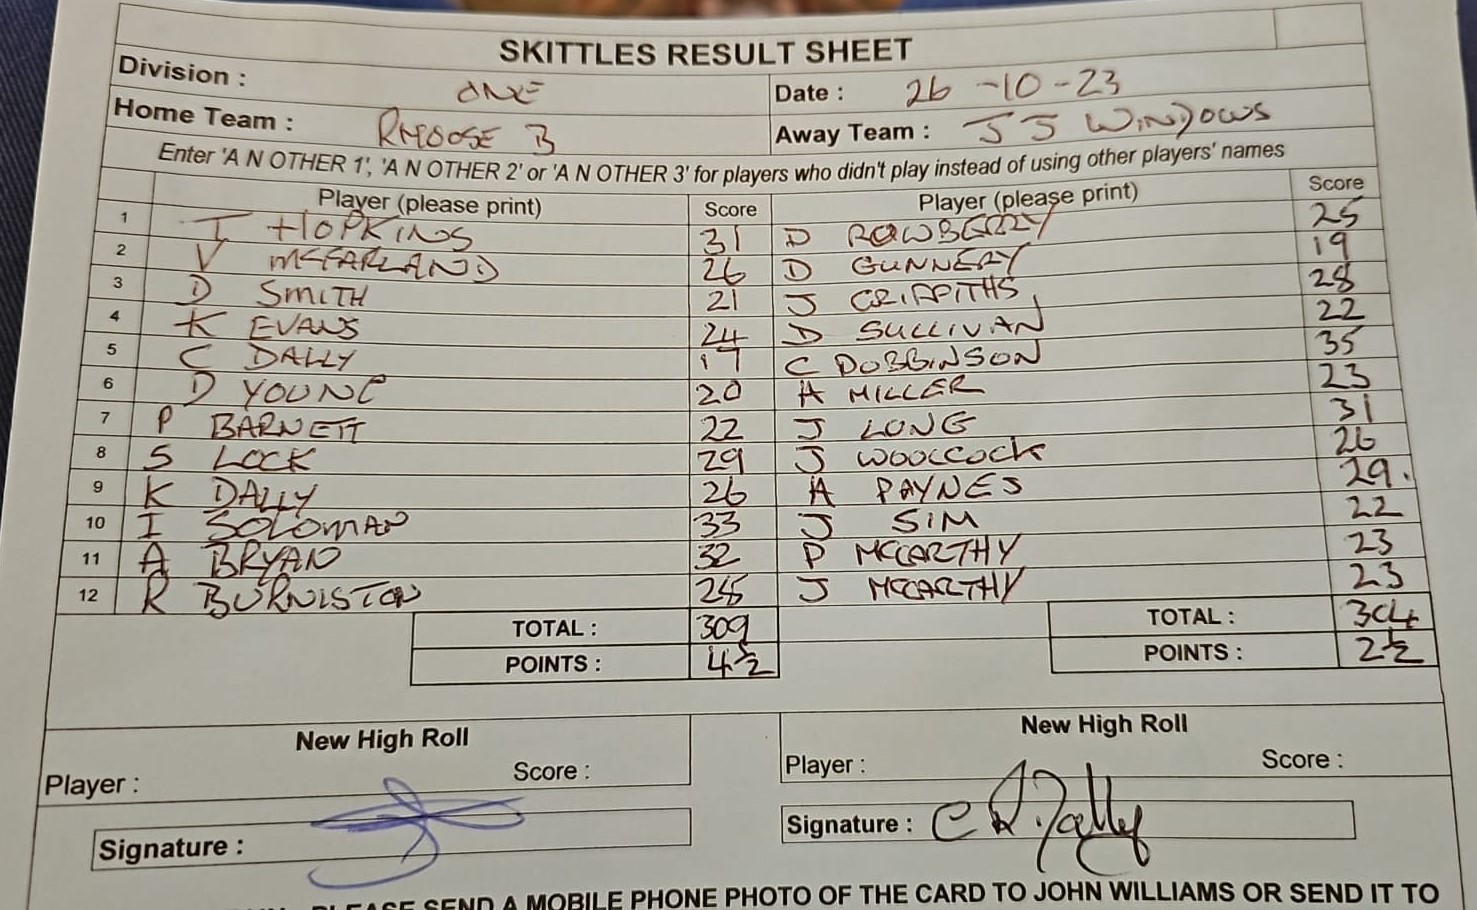 SKITTLES RESULT SHEET
Division : ONE Date : 26-10-23
Home Team : RHOOSE B Away Team : JJ WINDOWS
Enter 'A N OTHER 1', 'A N OTHER 2' or 'A N OTHER 3' for players who didn't play instead of using other players' names
Player (please print) Score Player (please print) Score
1 T HOPKINS 31 D ROWBERRY 25
2 V MCFARLAND 26 D GUNNERY 19
3 D SMITH 21 J GRIFFITHS 28
4 K EVANS 24 D SULLIVAN 22
5 C DALLY 17 C DOBBINSON 35
6 D YOUNG 20 A MILLER 23
7 P BARNETT 22 J LONG 31
8 S LOCK 29 J WOOLCOCK 26
9 K DALLY 26 A PAYNES 29.
10 I SOLOMAN 33 J SIM 22
11 A BRYAN 32 P MCCARTHY 23
12 R BURNISTON 28 J MCCARTHY 23
TOTAL : 309 TOTAL : 304
POINTS : 4½ POINTS : 2½
New High Roll New High Roll
Player : Score : Player : Score :
Signature : Signature : C R Dally
PLEASE SEND A MOBILE PHONE PHOTO OF THE CARD TO JOHN WILLIAMS OR SEND IT TO